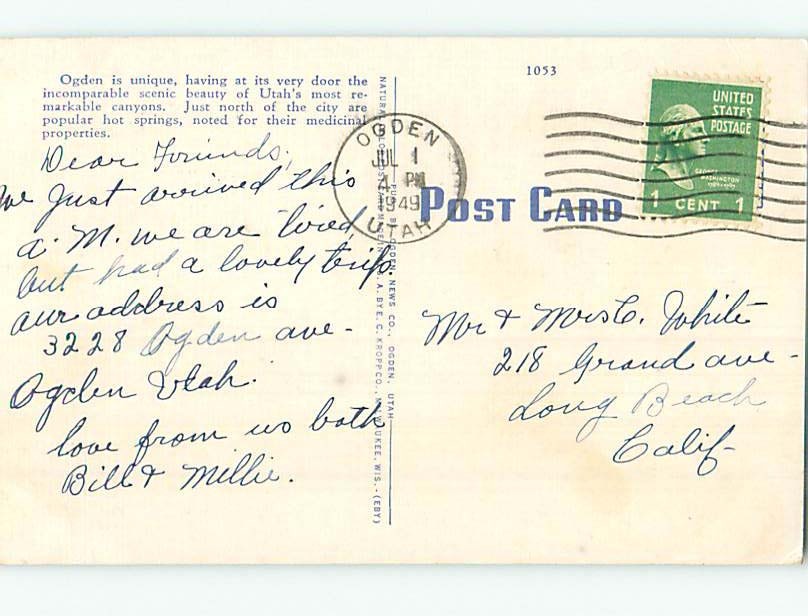 1053
Ogden is unique, having at its very door the
incomparable scenic beauty of Utah's most re-
markable canyons. Just north of the city are
popular hot springs, noted for their medicinal
properties.
Dear Friends,
we Just arrived this
a. M. we are tired
but had a lovely trip
our address is
3228 Ogden ave-
Ogden Utah.
love from us both
Bill & Millie.
PUB. BY OGDEN NEWS CO., OGDEN, UTAH
BY E. C. KROPP CO., MILWAUKEE, WIS.-(EBY)
OGDEN
JUL 1
4 PM
1949
UTAH
POST CARD
UNITED
STATES
POSTAGE
GEORGE
WASHINGTON
1789-1797
1 CENT 1
Mr & Mrs C. White
218 Grand ave-
Long Beach
Calif-